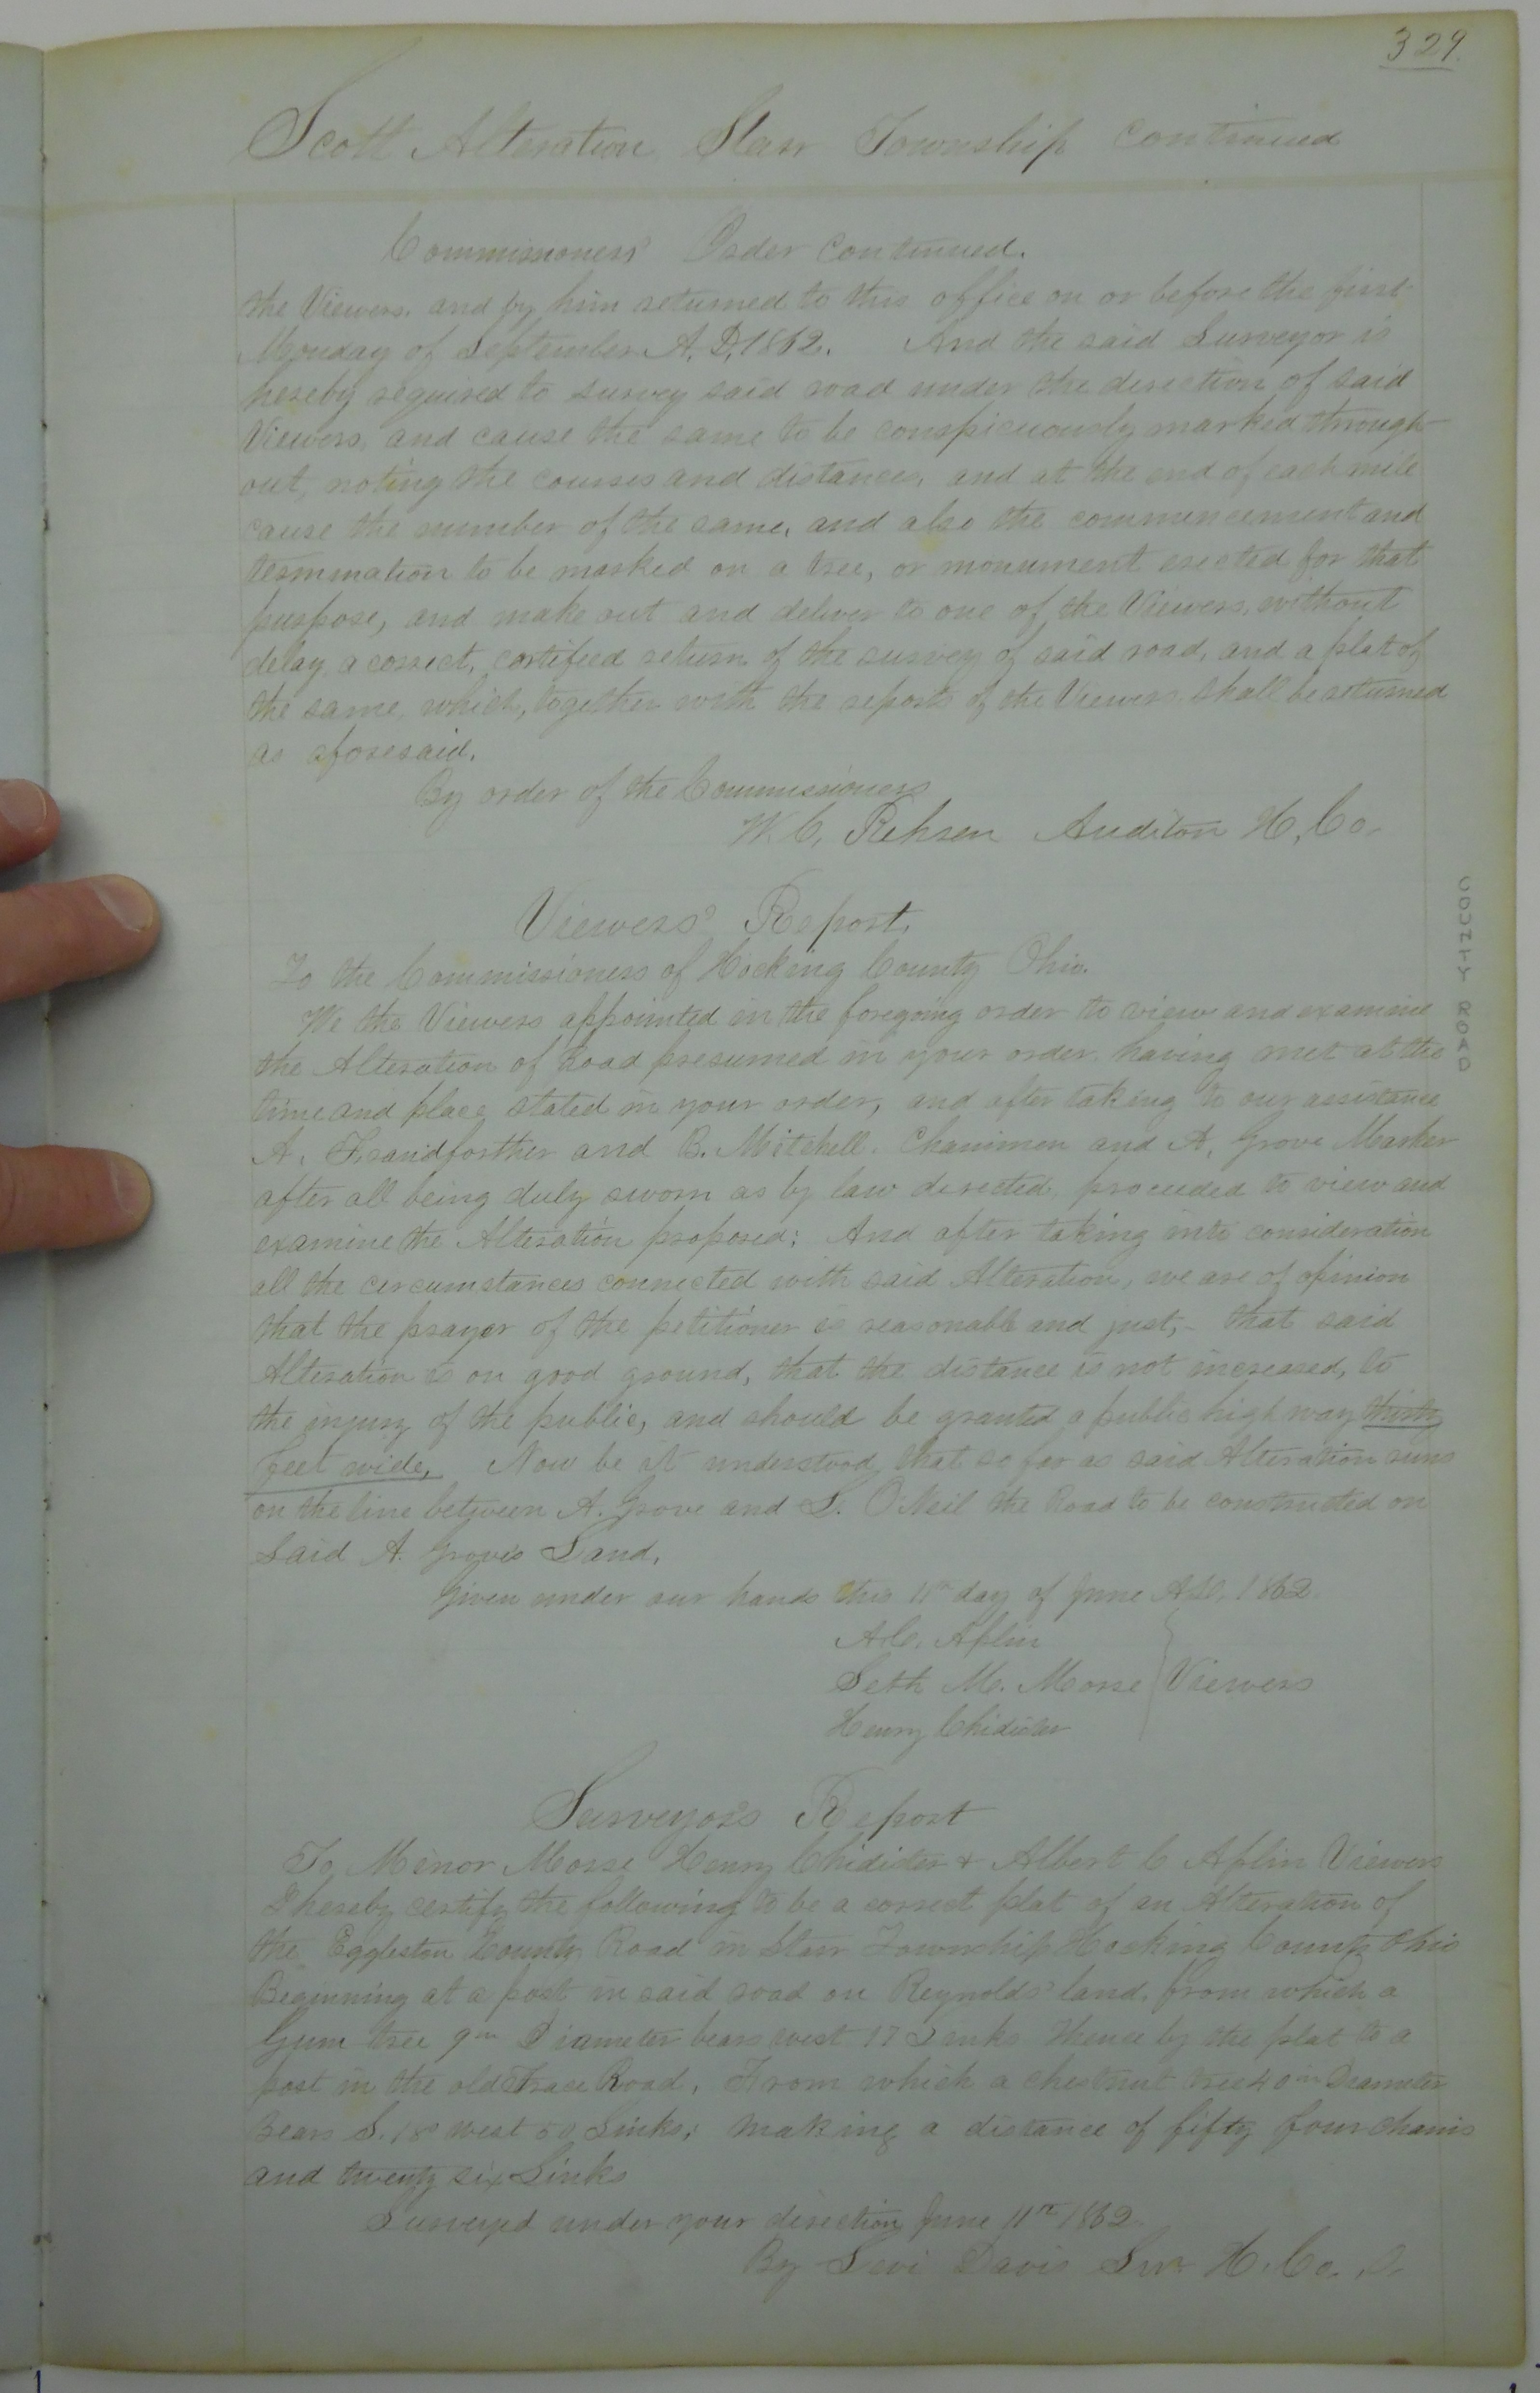 329.
Scott Alteration Starr Township continued
Commissioners' Order continued.
the Viewers, and by him returned to this office on or before the first
Monday of September A. D. 1862. And the said Surveyor is
hereby required to survey said road under the direction of said
Viewers, and cause the same to be conspicuously marked through-
out, noting the courses and distances, and at the end of each mile
cause the number of the same, and also the commencement and
termination to be marked on a tree, or monument erected for that
purpose, and make out and deliver to one of the Viewers, without
delay, a correct, certified return of the survey of said road, and a plat of
the same, which, together with the report of the Viewers shall be returned
as aforesaid.
By order of the Commissioners
W. C. Auditor H. Co.
Viewers' Report.
To the Commissioners of Hocking County Ohio.
We the Viewers appointed in the foregoing order to view and examine
the Alteration of Road presumed in your order, having met at the
time and place stated in your order, and after taking to our assistance
A. and B. Mitchell. Chainmen and A. Grove Marker
after all being duly sworn as by law directed, proceeded to view and
examine the Alteration proposed; And after taking into consideration
all the circumstances connected with said Alteration, we are of opinion
that the prayer of the petitioner is reasonable and just;- that said
Alteration is on good ground, that the distance is not increased, to
the injury of the public, and should be granted a public highway thirty
feet wide, Now be it understood that so far as said Alteration runs
on the line between A. Grove and S. O'Neil the Road to be constructed on
Said A. Grove's Land.
Given under our hands this 11th day of June A.D. 1862.
A.C. Aplin
Seth M. Morse } Viewers
Henry Chidister
Surveyor's Report
To Minor Morse Henry Chidister + Albert C Aplin Viewers
I hereby certify the following to be a correct plat of an Alteration of
the Eggleston County Road in Starr Township Hocking County Ohio
Beginning at a post in said road on Reynolds' land, from which a
Gum tree 9in Diameter bears west 17 Links Thence by the plat to a
post in the old Road, From which a chestnut tree 40in Diameter
bears S. 18° west 50 Links; making a distance of fifty four chains
and twenty six Links
Surveyed under your direction June 11th 1862.
By Levi Davis Sur H. Co. O.
COUNTY ROAD